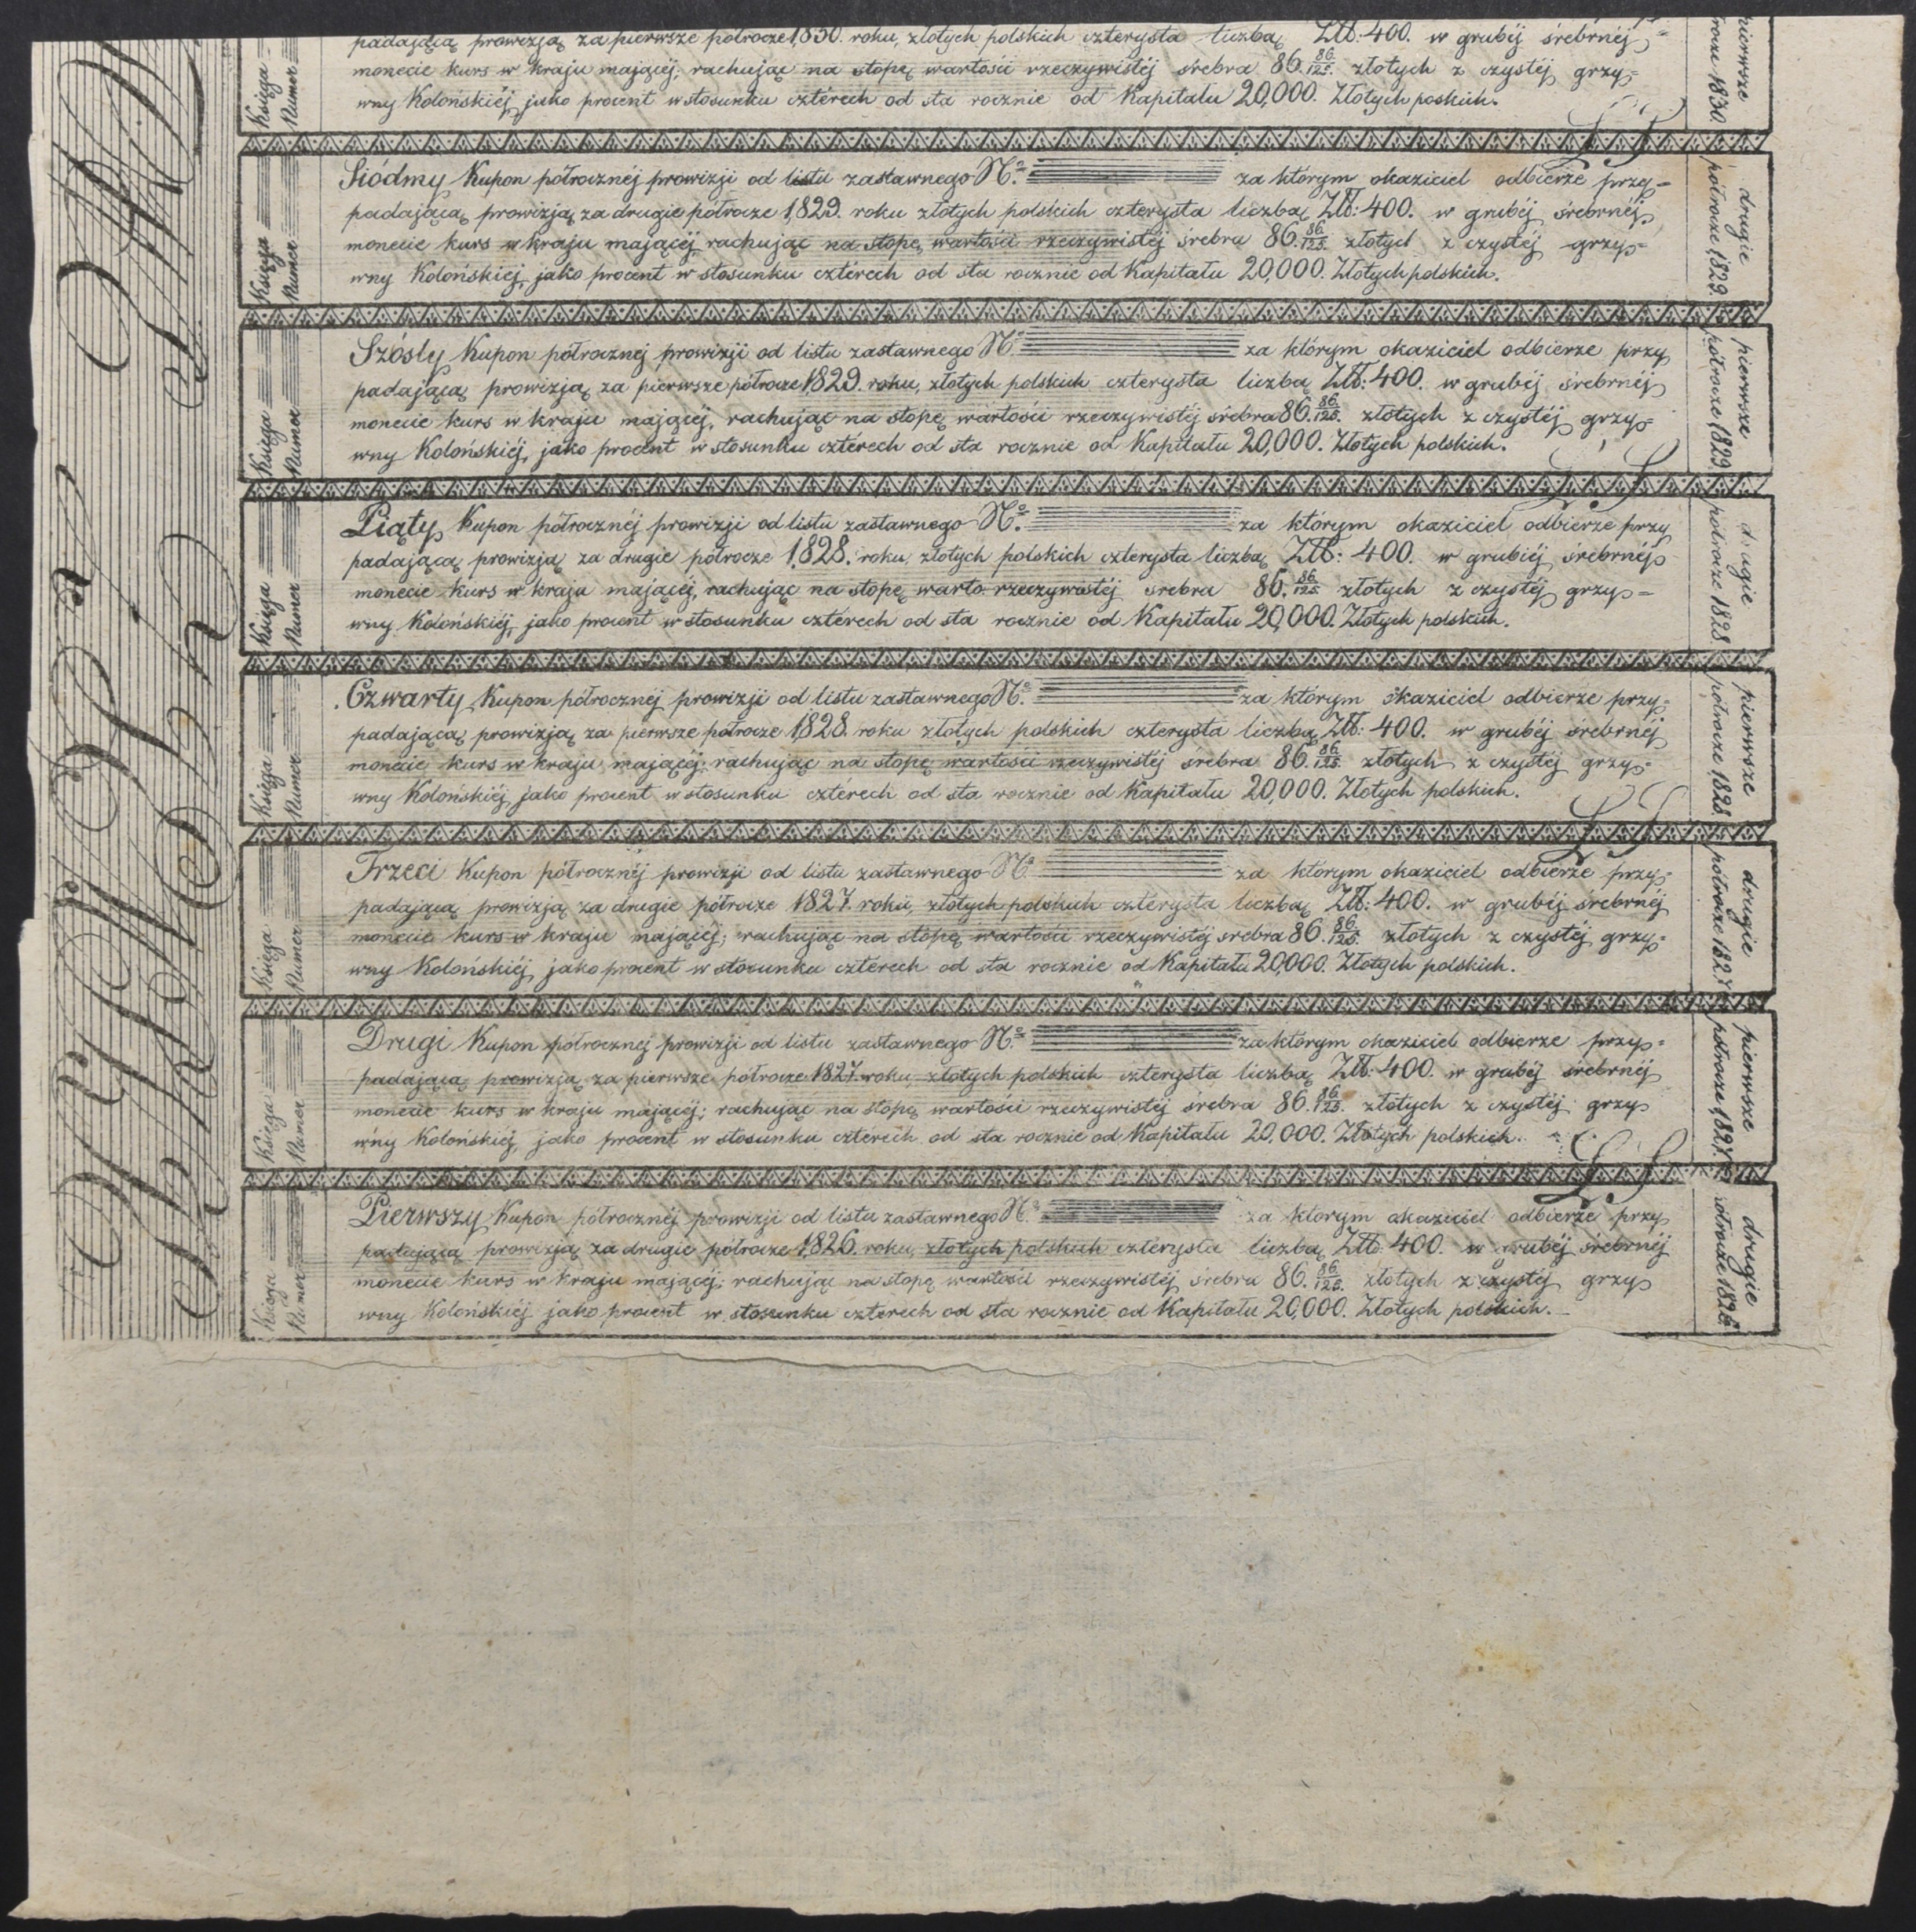 padającą prowizją za pierwsze półrocze 1830. roku, złotych polskich czterysta liczbą Złł: 400. w grubéj śrebrnéj
monecie kurs w kraju mającéj; rachując na stopę wartości rzeczywistéj śrebra 86. 86/125. złotych z czystéj grzy=
wny Kolońskiéj, jako procent w stosunku cztérech od sta rocznie od Kapitału 20,000. Złotych poskich.
Księga
Numer
pierwsze
1830.
Siódmy Kupon półrocznéj prowizji od listu zastawnego N.o za którym okaziciel odbierze przy=
padającą prowizją za drugie półrocze 1829. roku złotych polskich czterysta liczbą Złł: 400. w grubéj śrebrnéj
monecie kurs w kraju mającéj, rachując na stopę wartości rzeczywistéj śrebra 86. 86/125. złotych z czystéj grzy=
wny Kolońskiéj, jako procent w stosunku cztérech od sta rocznie od Kapitału 20,000. Złotych polskich.
Księga
Numer
drugie
półrocze 1829.
Szósty Kupon półrocznéj prowizji od listu zastawnego N.o za którym okaziciel odbierze przy
padającą prowizją za pierwsze półrocze 1829. roku, złotych polskich czterysta liczbą Złł: 400. w grubéj śrebrnéj
monecie kurs w kraju mającéj, rachując na stopę wartości rzeczywistéj śrebra 86. 86/125. złotych z czystéj grzy=
wny Kolońskiéj, jako procent w stosunku cztérech od sta rocznie od Kapitału 20,000. Złotych polskich.
Księga
Numer
pierwsze
półrocze 1829.
Piąty Kupon półrocznéj prowizji od listu zastawnego N.o za którym okaziciel odbierze przy
padającą prowizją za drugie półrocze 1828. roku, złotych polskich czterysta liczbą Złł: 400. w grubiéj śrebrnéj
monecie kurs w kraju mającéj, rachując na stopę warto. rzeczywistéj srebra 86. 86/125 złotych z czystéj grzy=
wny Kolońskiéj, jako procent w stosunku cztérech od sta rocznie od Kapitału 20,000. Złotych polskich.
Księga
Numer
drugie
półrocze 1828.
Czwarty Kupon półrocznéj prowizji od listu zastawnego N.o za którym okaziciel odbierze przy=
padającą prowizją za pierwsze półrocze 1828. roku złotych polskich czterysta liczbą Złł: 400. w grubéj śrebrnéj
monecie kurs w kraju mającéj; rachując na stopę wartości rzeczywistéj śrebra 86. 86/125. złotych z czystéj grzy=
wny Kolońskiéj, jako procent w stosunku cztérech od sta rocznie od Kapitału 20,000. Złotych polskich.
Księga
Numer
pierwsze
półrocze 1828.
Trzeci Kupon półrocznéj prowizji od listu zastawnego N.o za którym okaziciel odbierze przy=
padającą prowizją za drugie półrocze 1827. roku, złotych polskich czterysta liczbą Złł: 400. w grubéj śrebrnéj
monecie kurs w kraju mającéj; rachując na stopę wartości rzeczywistéj srebra 86. 86/125. złotych z czystéj grzy=
wny Kolońskiéj, jako procent w stosunku cztérech od sta rocznie od Kapitału 20,000. Złotych polskich.
Księga
Numer
drugie
półrocze 1827.
Drugi Kupon półrocznej prowizji od listu zastawnego N.o za którym okaziciel odbierze przy=
padającą prowizją za pierwsze półrocze 1827. roku złotych polskich czterysta liczbą Złł: 400. w grubéj śrebrnéj
monecie kurs w kraju mającéj; rachując na stopę wartości rzeczywistéj śrebra 86. 86/125. złotych z czystéj grzy
wny Kolońskiéj, jako procent w stosunku cztérech od sta rocznie od Kapitału 20,000. Złotych polskich.
Księga
Numer
pierwsze
półrocze 1827.
Pierwszy Kupon półrocznéj prowizji od listu zastawnego N.o za którym okaziciel odbierze przy
padającą prowizją za drugie półrocze 1826. roku, złotych polskich czterysta liczbą Złł: 400. w grubéj śrebrnéj
monecie kurs w kraju mającéj; rachując na stopę wartości rzeczywistéj śrebra 86. 86/125. złotych z czystéj grzy
wny Kolońskiéj jako procent w stosunku czterech od sta rocznie od Kapitału 20,000. Złotych polskich.
Księga
Numer
drugie
półrocze 1826.